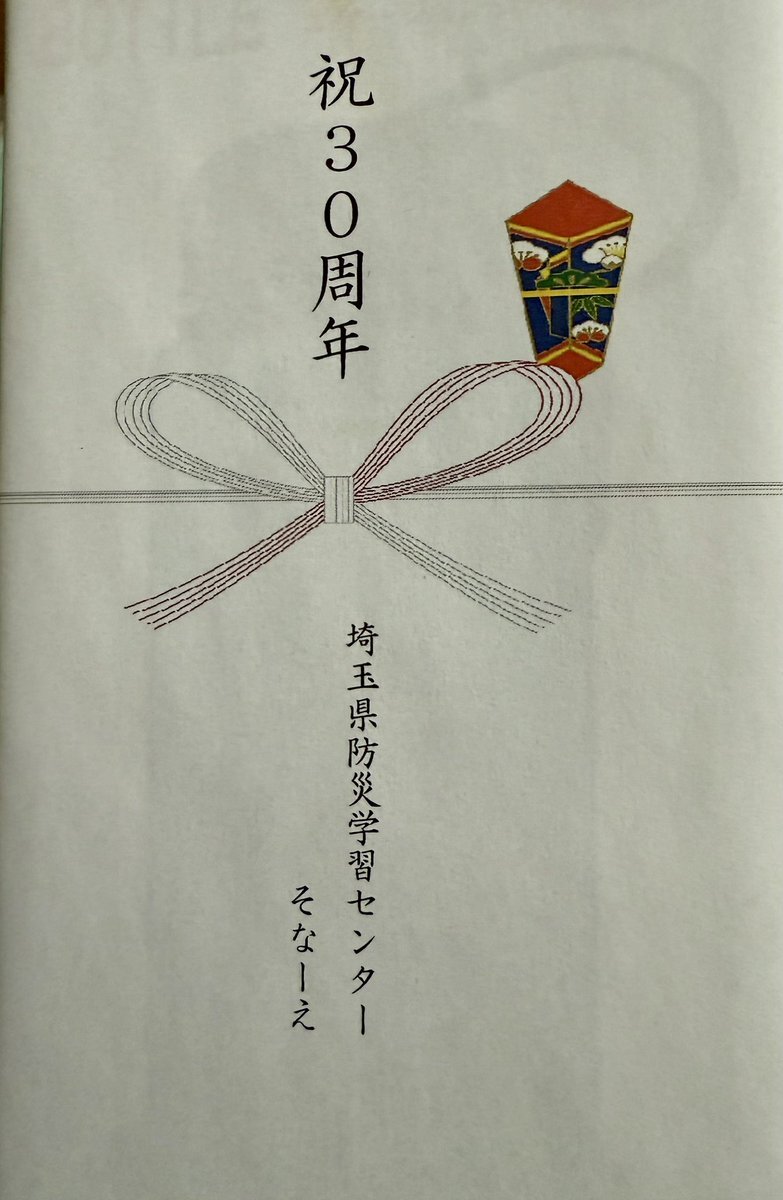 祝30周年
埼玉県防災学習センター
そなーえ